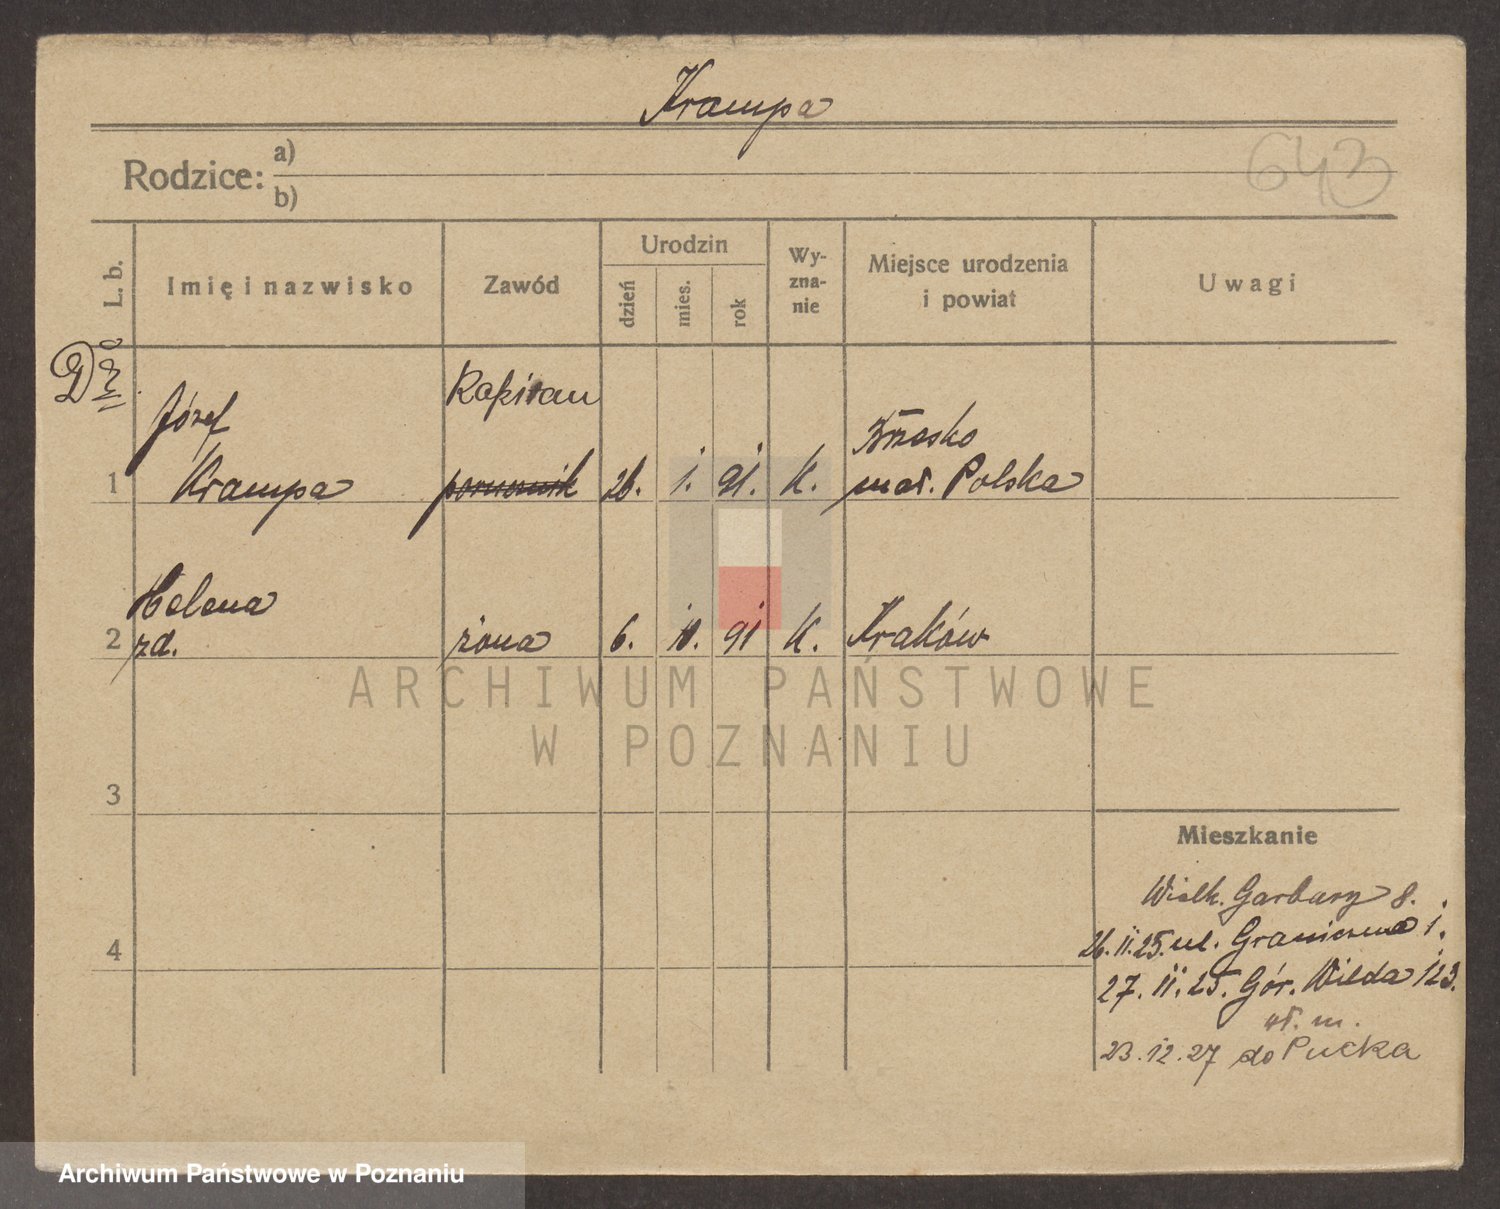 Krampa
643
Rodzice: a)
b)
L. b.
Imię i nazwisko
Zawód
Urodzin
dzień
mies.
rok
Wy-
zna-
nie
Miejsce urodzenia
i powiat
Uwagi
Józef
Kapitan
Brzesko
1 Krampa porucznik 26. 1. 91. K. mał. Polska
Helena
2 zd. żona 6. 10. 91 K. Kraków
3
4
Mieszkanie
Wielk. Garbary 8.
26. II. 25. ul. Graniczna 1.
27. II. 25. Gór. Wilda 123.
wł. m.
23. 12. 27 do Pucka
ARCHIWUM PAŃSTWOWE
W POZNANIU
Archiwum Państwowe w Poznaniu